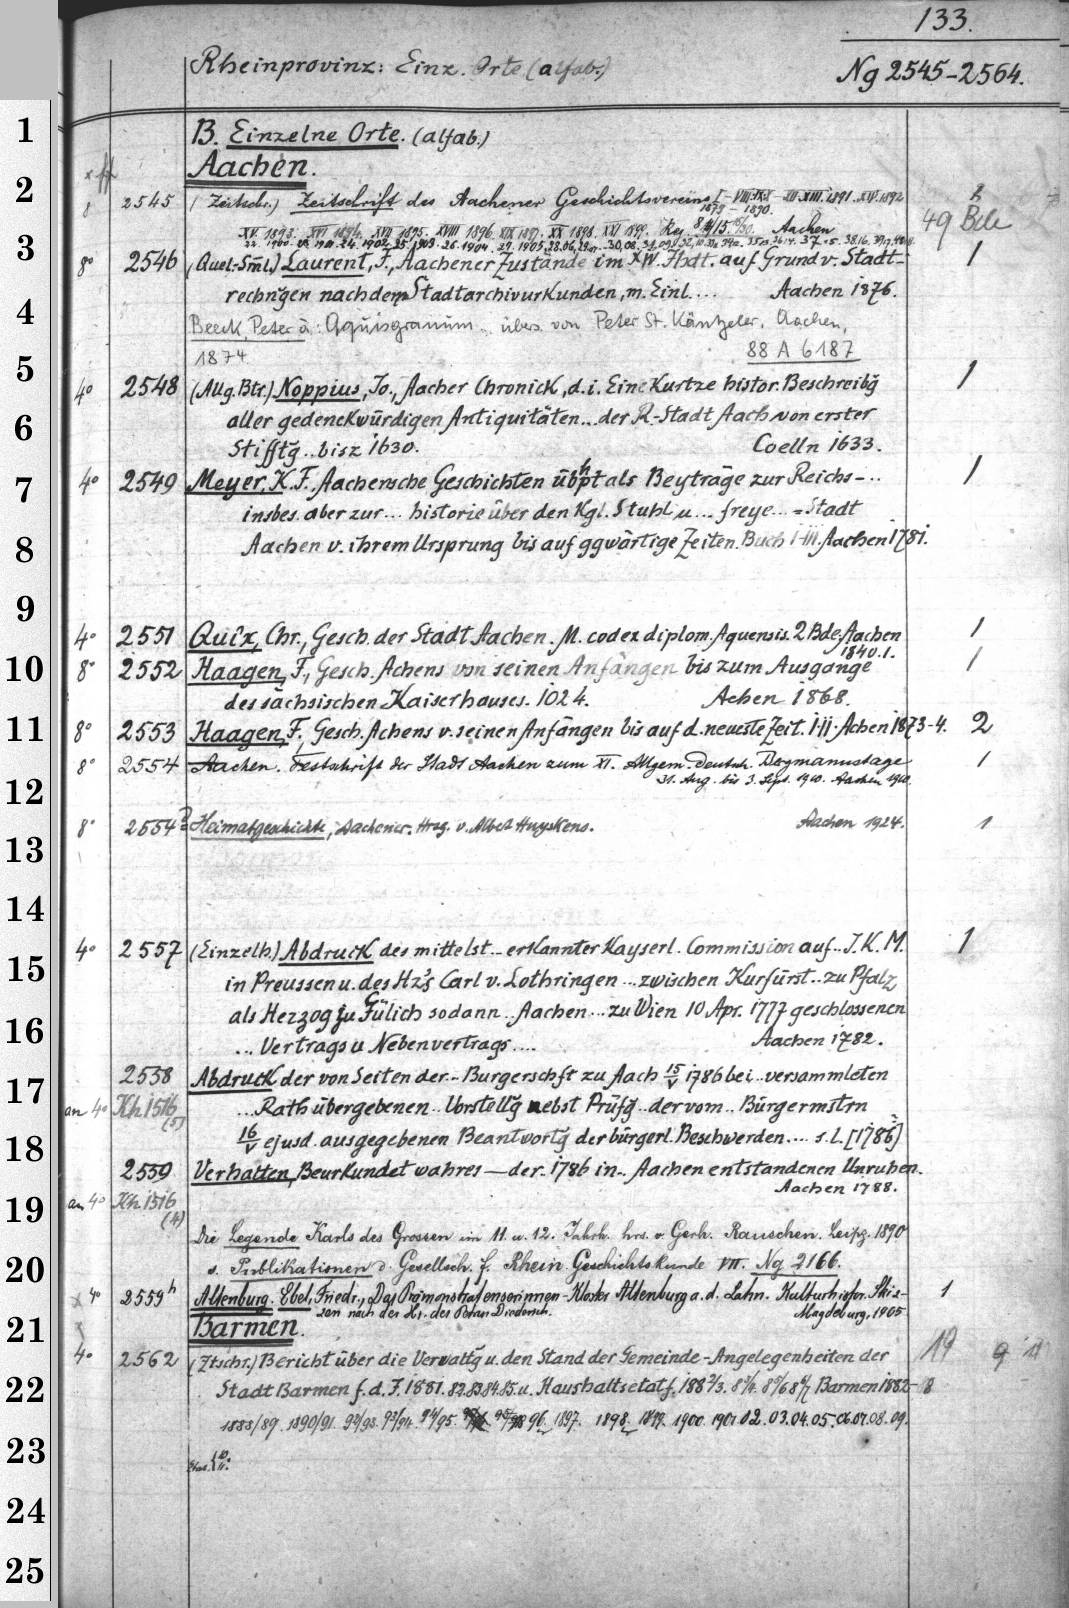 133.
Rheinprovinz: Einz. Orte (alfab.)
Ng 2545-2564.
1
B. Einzelne Orte. (alfab.)
Aachen.
2
8° 2545 (Zeitschr.) Zeitschrift des Aachener Geschichtsvereins 1879 1890. 1891. XV. 1892
49 Bde
XV. 1893. XVI 1894. XVII 1895. XVIII 1896. XIX 1897. XX 1898. XXI 1899. Reg. Aachen
22. 1900. 24. 1902. 25. 1903. 26. 1904. 27. 1905.
3
8° 2546 (Quel.-Sml.) Laurent, F., Aachener Zustände im XIV. Jhdt. auf Grund v. Stadt- 1
rechngen nach dem Stadtarchivurkunden, m. Einl.... Aachen 1876.
4
Beeck, Peter à: Aquisgranum, übers. von Peter St. Käntzeler. Aachen,
5
1874. 88 A 6187
4° 2548 (Allg. Btr.) Noppius, Jo., Aacher Chronick, d. i. Eine Kurtze histor. Beschreibg 1
6
aller gedenckwürdigen Antiquitäten... der R.-Stadt Aach von erster
Stifftg.. bisz 1630. Coelln 1633.
7
4° 2549 Meyer, K. F., Aachensche Geschichten übhpt als Beyträge zur Reichs-.. 1
insbes. aber zur... historie über den Kgl. Stuhl u... freye...=Stadt
8
Aachen v. ihrem Ursprung bis auf ggwärtige Zeiten. Buch I-III. Aachen 1781.
9
4° 2551 Quix, Chr., Gesch. der Stadt Aachen. M. codex diplom. Aquensis. 2 Bde. Aachen 1
1840.1.
10
8° 2552 Haagen, F., Gesch. Achens von seinen Anfängen bis zum Ausgange 1
des sächsischen Kaiserhauses. 1024. Achen 1868.
11
8° 2553 Haagen, F., Gesch. Achens v. seinen Anfängen bis auf d. neueste Zeit. I.II. Achen 1873-4. 2
8° 2554 Aachen. Festschrift der Stadt Aachen zum XI. Allgem. Deutsch. Bergmannstage 1
12
31. Aug. bis 3. Sept. 1910. Aachen 1910.
8° 2554 Heimatgeschichte, Aachener. Hrsg. v. Albert Huyskens. Aachen 1924. 1
13
14
4° 2557 (Einzelh.) Abdruck des mittelst.. erkannter Kayserl. Commission auf.. J. K. M. 1
15
in Preussen u. des Hz's Carl v. Lothringen ... zwischen Kurfürst.. zu Pfalz
als Herzog zu Gülich sodann.. Aachen ... zu Wien 10 Apr. 1777 geschlossenen
16
... Vertrags u Nebenvertrags.... Aachen 1782.
17
2558 Abdruck der von Seiten der.. Burgerschft zu Aach 15/V 1786 bei.. versammleten
an 4° Kh 1516 (5) ...Rath übergebenen.. Vorstellg nebst Prüfg.. der vom.. Bürgermstrn
18
16/V ejusd. ausgegebenen Beantwortg der bürgerl. Beschwerden.... s. l. [1786]
2559 Verhalten, Beurkundet wahres — der.. 1786 in.. Aachen entstandenen Unruhen.
Aachen 1788.
19
an 4° Kh 1516 (4)
Die Legende Karls des Grossen im 11. u. 12. Jahrh. hrs. v. Gerh. Rauschen. Leipzg. 1890
20
s. Publikationen d. Gesellsch. f. Rhein Geschichtskunde VII. Ng 2166.
4° 2559h Altenburg. Ebel, Friedr., Das Prämonstratenserinnen-Kloster Altenburg a. d. Lahn. Kulturhistor. Skiz- 1
zen nach der Hs. des Petrus Diederich. Magdeburg, 1905
21
Barmen.
4° 2562 (Ztschr.) Bericht über die Verwaltg u. den Stand der Gemeinde-Angelegenheiten der 19
22
Stadt Barmen f. d. J. 1881. 82.83.84.85. u. Haushaltsetat f. 1882/3. Barmen 1882-
1888/89. 1890/91. 92/93. 93/94. 94/95. 96. 1897. 1898. 1899. 1900. 1901 02. 03. 04. 05. 06. 07. 08. 09.
23
24
25